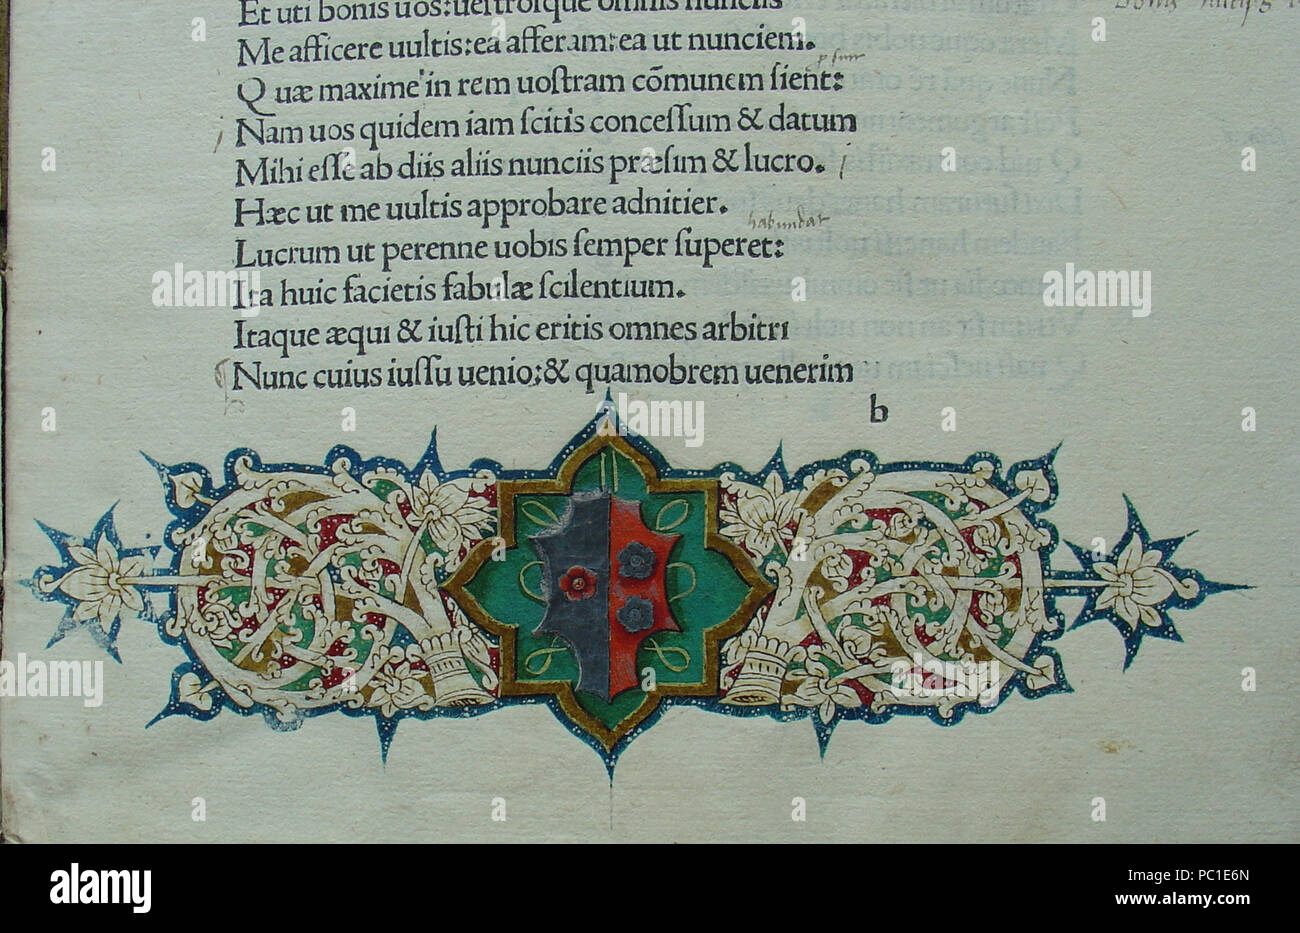 Et uti bonis uos: uestrosque omnis nunciis
Me afficere uultis: ea afferam: ea ut nunciem.
Quæ maxime in rem uoſtram cōmunem ſient:
Nam uos quidem iam ſcitis conceſſum & datum
Mihi eſſe ab diis aliis nunciis præſim & lucro.
Hæc ut me uultis approbare adnitier.
habundat
Lucrum ut perenne uobis ſemper ſuperet:
Ita huic facietis fabulæ ſcilentium.
Itaque æqui & iuſti hic eritis omnes arbitri
Nunc cuius iuſſu uenio: & quamobrem uenerim
b
alamy
alamy
Image ID: PC1E6N
www.alamy.com